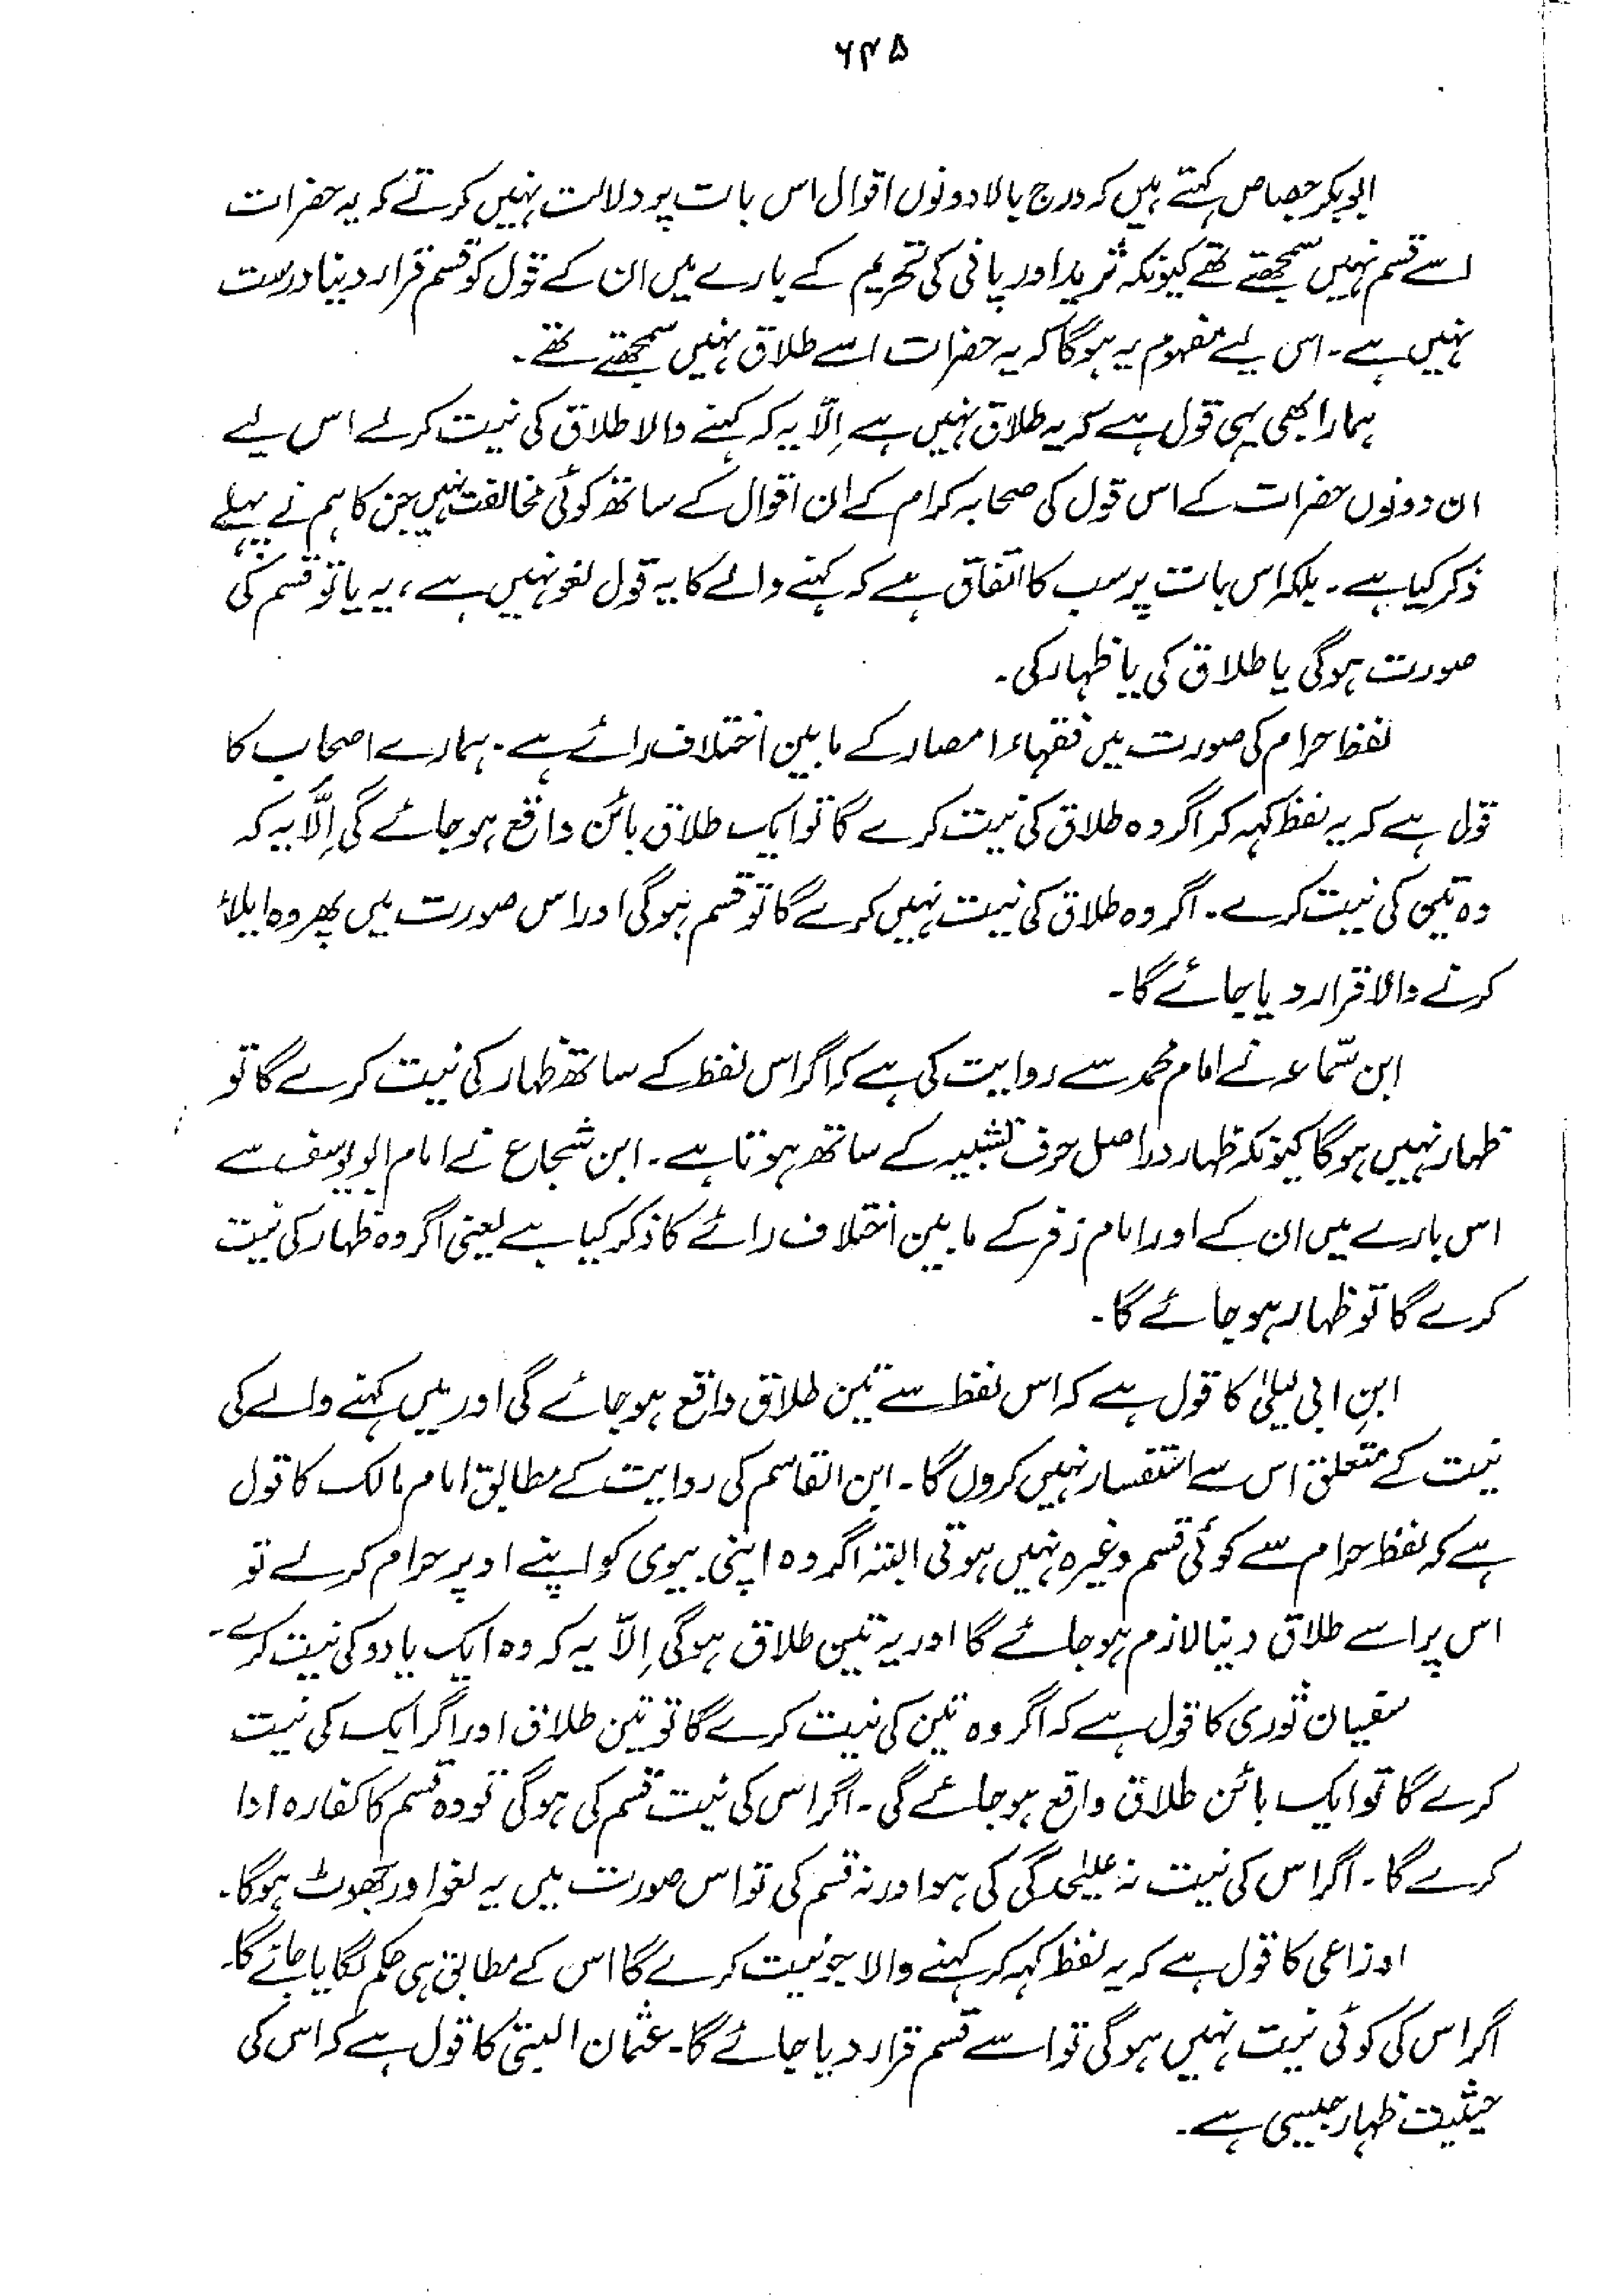 ۶۴۵
ابوبکر جصاص کہتے ہیں کہ درج بالا دونوں اقوال اس بات پر دلالت نہیں کرتے کہ یہ حضرات
اسے قسم نہیں سمجھتے تھے کیونکہ ثرید اور پانی کی تحریم کے بارے میں ان کے قول کو قسم قرار دینا درست
نہیں ہے۔ اس لیے مفہوم یہ ہوگا کہ یہ حضرات اسے طلاق نہیں سمجھتے تھے۔
ہمارا بھی یہی قول ہے کہ یہ طلاق نہیں ہے اِلّا یہ کہ کہنے والا طلاق کی نیت کرلے اس لیے
ان دونوں حضرات کے اس قول کی صحابہ کرام کے ان اقوال کے ساتھ کوئی مخالفت نہیں جن کا ہم نے پہلے
ذکر کیا ہے۔ بلکہ اس بات پر سب کا اتفاق ہے کہ کہنے والے کا یہ قول لغو نہیں ہے، یہ یا تو قسم کی
صورت ہوگی یا طلاق کی یا ظہار کی۔
لفظ حرام کی صورت میں فقہاء امصار کے مابین اختلاف رائے ہے۔ ہمارے اصحاب کا
قول ہے کہ یہ لفظ کہہ کر اگر وہ طلاق کی نیت کرے گا تو ایک طلاق بائن واقع ہوجائے گی اِلّا یہ کہ
وہ تین کی نیت کرے۔ اگر وہ طلاق کی نیت نہیں کرے گا تو قسم ہوگی اور اس صورت میں پھر وہ ایلاء
کرنے والا قرار دیا جائے گا۔
ابن سماعہ نے امام محمد سے روایت کی ہے کہ اگر اس لفظ کے ساتھ ظہار کی نیت کرے گا تو
ظہار نہیں ہوگا کیونکہ ظہار دراصل حرف تشبیہ کے ساتھ ہوتا ہے۔ ابن شجاع نے امام ابو یوسف سے
اس بارے میں ان کے اور امام زفر کے مابین اختلاف رائے کا ذکر کیا ہے یعنی اگر وہ ظہار کی نیت
کرے گا تو ظہار ہوجائے گا۔
ابنِ ابی لیلیٰ کا قول ہے کہ اس لفظ سے تین طلاق واقع ہوجائے گی اور میں کہنے والے کی
نیت کے متعلق اس سے استفسار نہیں کروں گا۔ ابن القاسم کی روایت کے مطابق امام مالک کا قول
ہے کہ لفظ حرام سے کوئی قسم وغیرہ نہیں ہوتی البتہ اگر وہ اپنی بیوی کو اپنے اوپر حرام کرلے تو
اس پر اسے طلاق دینا لازم ہوجائے گا اور یہ تین طلاق ہوگی اِلّا یہ کہ وہ ایک یا دو کی نیت کرے۔
سفیان ثوری کا قول ہے کہ اگر وہ تین کی نیت کرے گا تو تین طلاق اور اگر ایک کی نیت
کرے گا تو ایک بائن طلاق واقع ہوجائے گی۔ اگر اس کی نیت قسم کی ہوگی تو وہ قسم کا کفارہ ادا
کرے گا۔ اگر اس کی نیت نہ علیٰحدگی کی ہو اور نہ قسم کی تو اس صورت میں یہ لغو اور جھوٹ ہوگا۔
اوزاعی کا قول ہے کہ یہ لفظ کہہ کر کہنے والا جو نیت کرے گا اس کے مطابق ہی حکم لگایا جائے گا۔
اگر اس کی کوئی نیت نہیں ہوگی تو اسے قسم قرار دیا جائے گا۔ عثمان البتی کا قول ہے کہ اس کی
حیثیت ظہار جیسی ہے۔